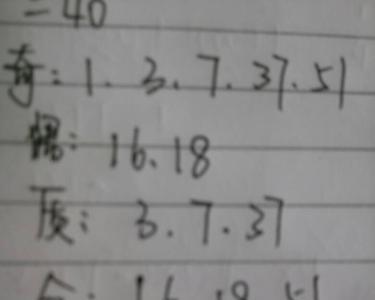 =40
奇：1．3．7．37．51
偶：16、18
质：3．7．37